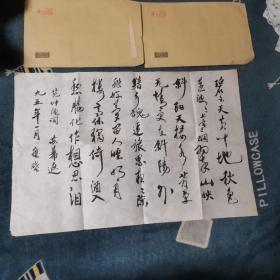 碧云天黄叶地秋色
连波波上寒烟翠山映
斜阳天接水芳草
无情更在斜阳外
黯乡魂追旅思夜夜除
非好梦留人睡明月
楼高休独倚酒入
愁肠化作相思泪
范仲淹词 苏幕遮
九五年一月
PILLOWCASE